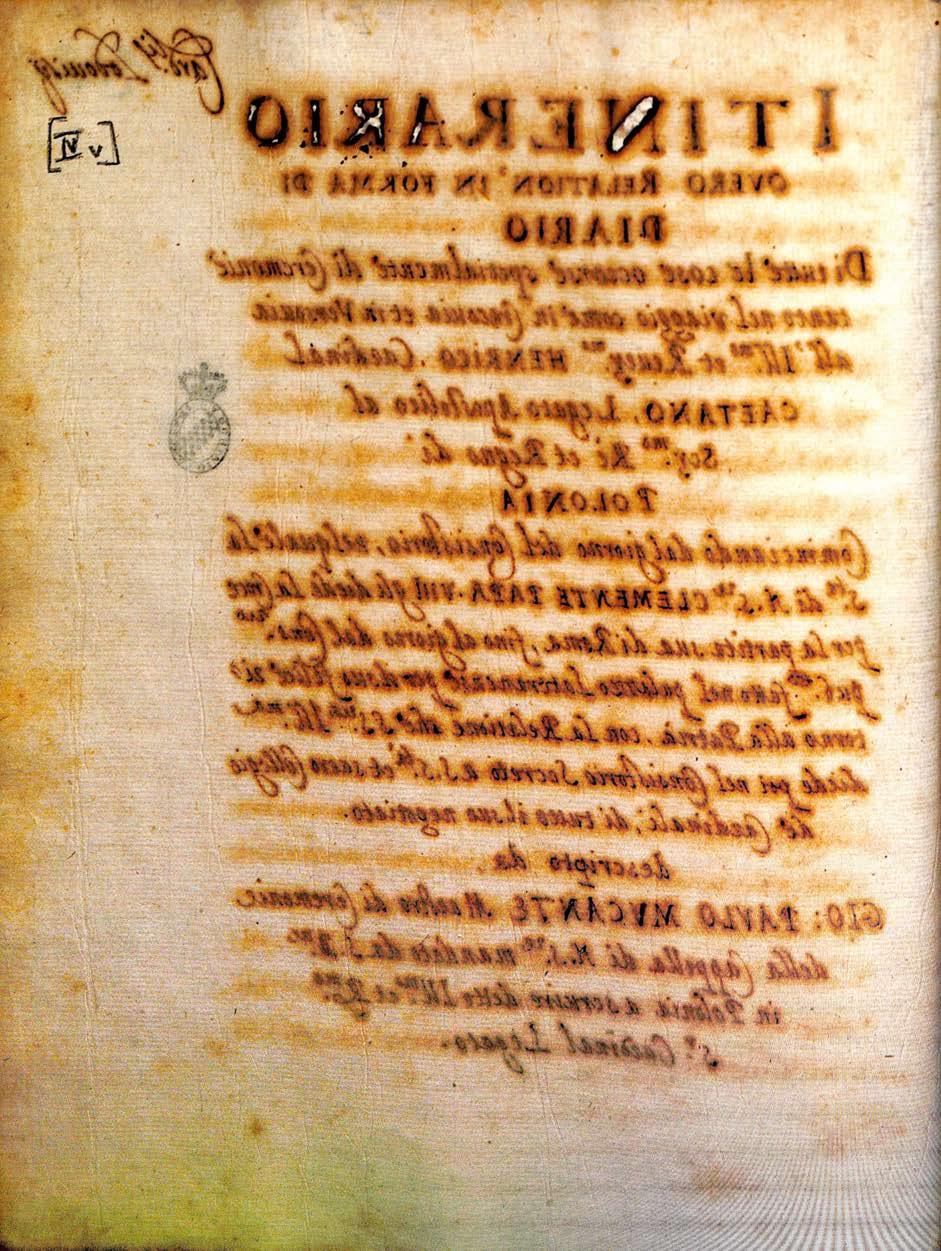 Card.l Lodouisij
[IV v]
ITINERARIO
OVERO RELATION' IN FORMA DI
DIARIO
Di tutte le cose occorse specialmente di Ceremonie
tanto nel viaggio come in Cracouia et in Varsauia
all' Ill.mo et Reuer.mo HENRICO Cardinal
CAETANO, Legato Apostolico al
Ser.mo Rè et Regno di
POLONIA
Cominciando dal giorno del Consistorio, nel quale la
S.tà di N. S.re CLEMENTE PAPA VIII gli diede la Croce
per la partita sua di Roma, fino al giorno del
pub.co fatto nel palazzo Lateranense felice ri
torno alla Patria, con la Relatione che S.S. Ill.ma
diede poi nel Consistorio Secreto a S.S.tà et sacro Collegio
de Cardinali, di tutto il suo negotiato.
descripto da
GIO: PAVLO MVCANTE Maestro di Ceremonie
della Cappella di N. S.re mandato da S. B.ne
in Polonia a seruire detto Ill.mo et R.mo
S.r Cardinal Legato.